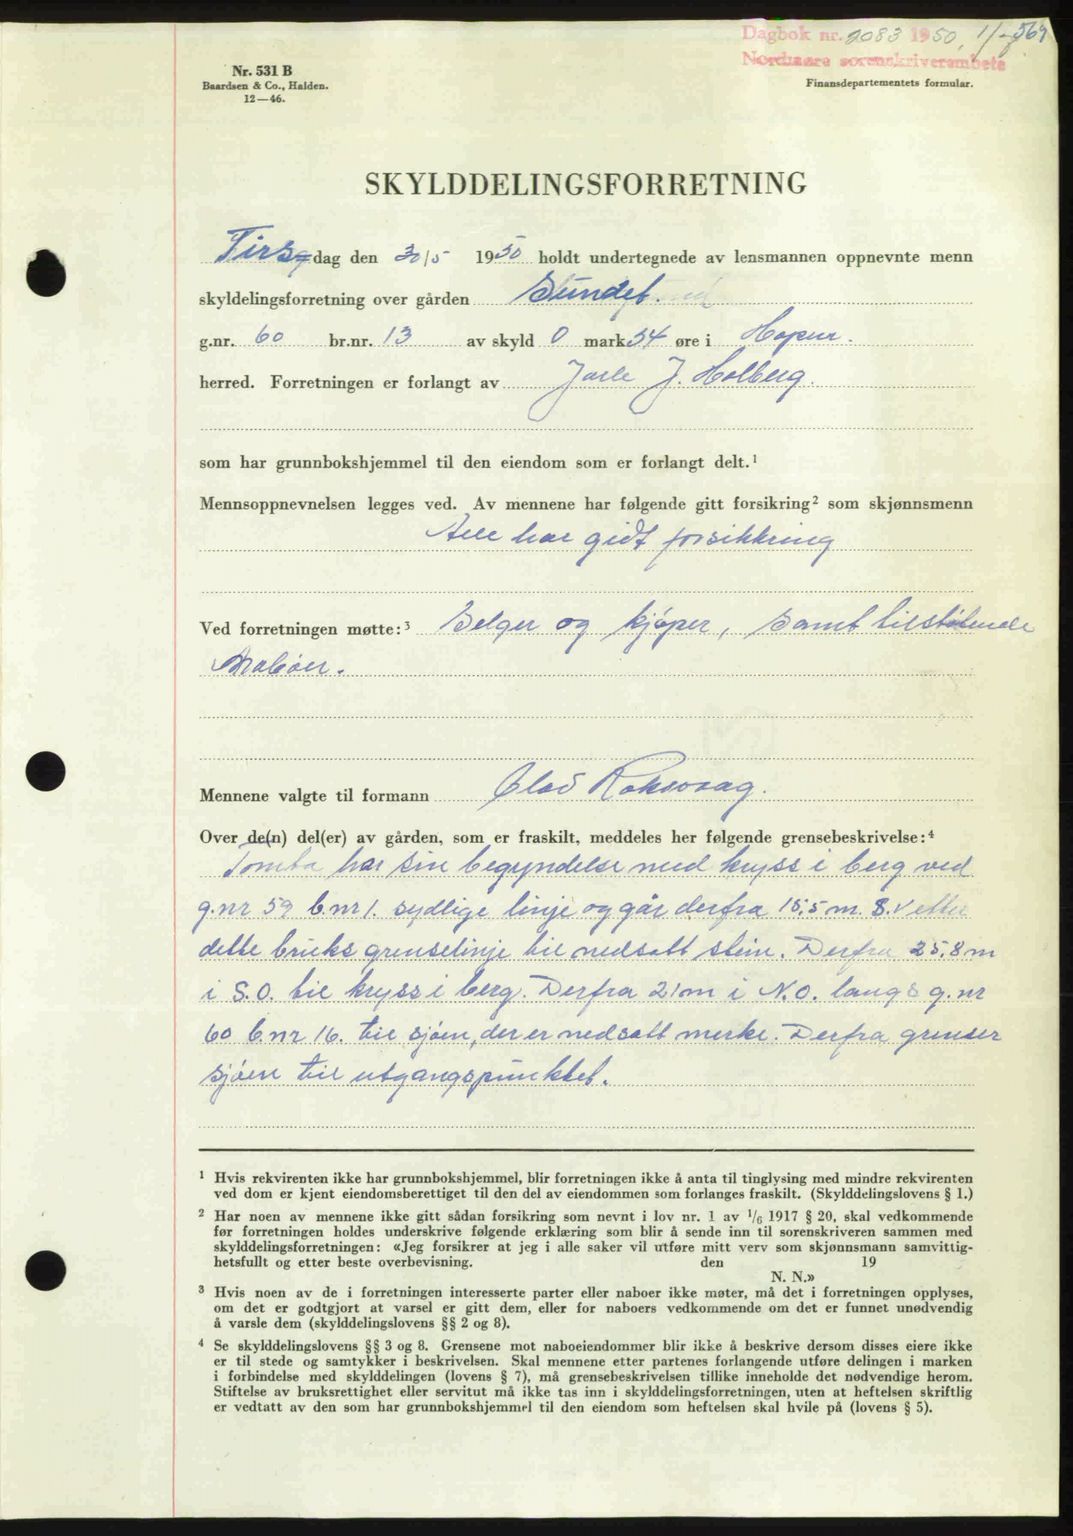 Dagbok nr. 2083 1950, 1/7 569
Nordmøre sorenskriverembete
Nr. 531 B
Baardsen & Co., Halden.
12—46.
Finansdepartementets formular.
SKYLDDELINGSFORRETNING
Tirsdag den 30/5 1950 holdt undertegnede av lensmannen oppnevnte menn
skyldelingsforretning over gården Sundet.
g.nr. 60 br.nr. 13 av skyld 0 mark 34 øre i Hopen.
herred. Forretningen er forlangt av Jarle J. Holberg.
som har grunnbokshjemmel til den eiendom som er forlangt delt.¹
Mennsoppnevnelsen legges ved. Av mennene har følgende gitt forsikring² som skjønnsmenn
Alle har gidt forsikkring
Ved forretningen møtte:³ Selger og kjøper, samt tilstøtende
Naboer.
Mennene valgte til formann Olav Roksvaag.
Over de(n) del(er) av gården, som er fraskilt, meddeles her følgende grensebeskrivelse:⁴
Tomta har sin begyndelse med kryss i berg ved
g.nr 59 b.nr 1. sydlige linje og går derfra 15,5 m. S.V etter
dette bruks grenselinje til nedsatt stein. Derfra 25,8 m
i S.O. til kryss i berg. Derfra 21 m i N.O. langs g.nr
60 b.nr 16. til sjøen, der er nedsatt merke. Derfra grenser
sjøen til utgangspunktet.
¹ Hvis rekvirenten ikke har grunnbokshjemmel, blir forretningen ikke å anta til tinglysing med mindre rekvirenten
ved dom er kjent eiendomsberettiget til den del av eiendommen som forlanges fraskilt. (Skylddelingslovens § 1.)
² Har noen av mennene ikke gitt sådan forsikring som nevnt i lov nr. 1 av 1/6 1917 § 20, skal vedkommende
før forretningen holdes underskrive følgende erklæring som blir å sende inn til sorenskriveren sammen med
skylddelingsforretningen: «Jeg forsikrer at jeg i alle saker vil utføre mitt verv som skjønnsmann samvittig-
hetsfullt og etter beste overbevisning. den 19
N. N.»
³ Hvis noen av de i forretningen interesserte parter eller naboer ikke møter, må det i forretningen opplyses,
om det er godtgjort at varsel er gitt dem, eller for naboers vedkommende om det er funnet unødvendig
å varsle dem (skylddelingslovens §§ 2 og 8).
⁴ Se skylddelingslovens §§ 3 og 8. Grensene mot naboeiendommer blir ikke å beskrive dersom disses eiere ikke
er til stede og samtykker i beskrivelsen. Skal mennene etter partenes forlangende utføre delingen i marken
i forbindelse med skylddelingen (lovens § 7), må grensebeskrivelsen tillike inneholde det nødvendige herom.
Stiftelse av bruksrettighet eller servitut må ikke tas inn i skylddelingsforretningen, uten at heftelsen skriftlig
er vedtatt av den som har grunnbokshjemmel til den eiendom som heftelsen skal hvile på (lovens § 5).